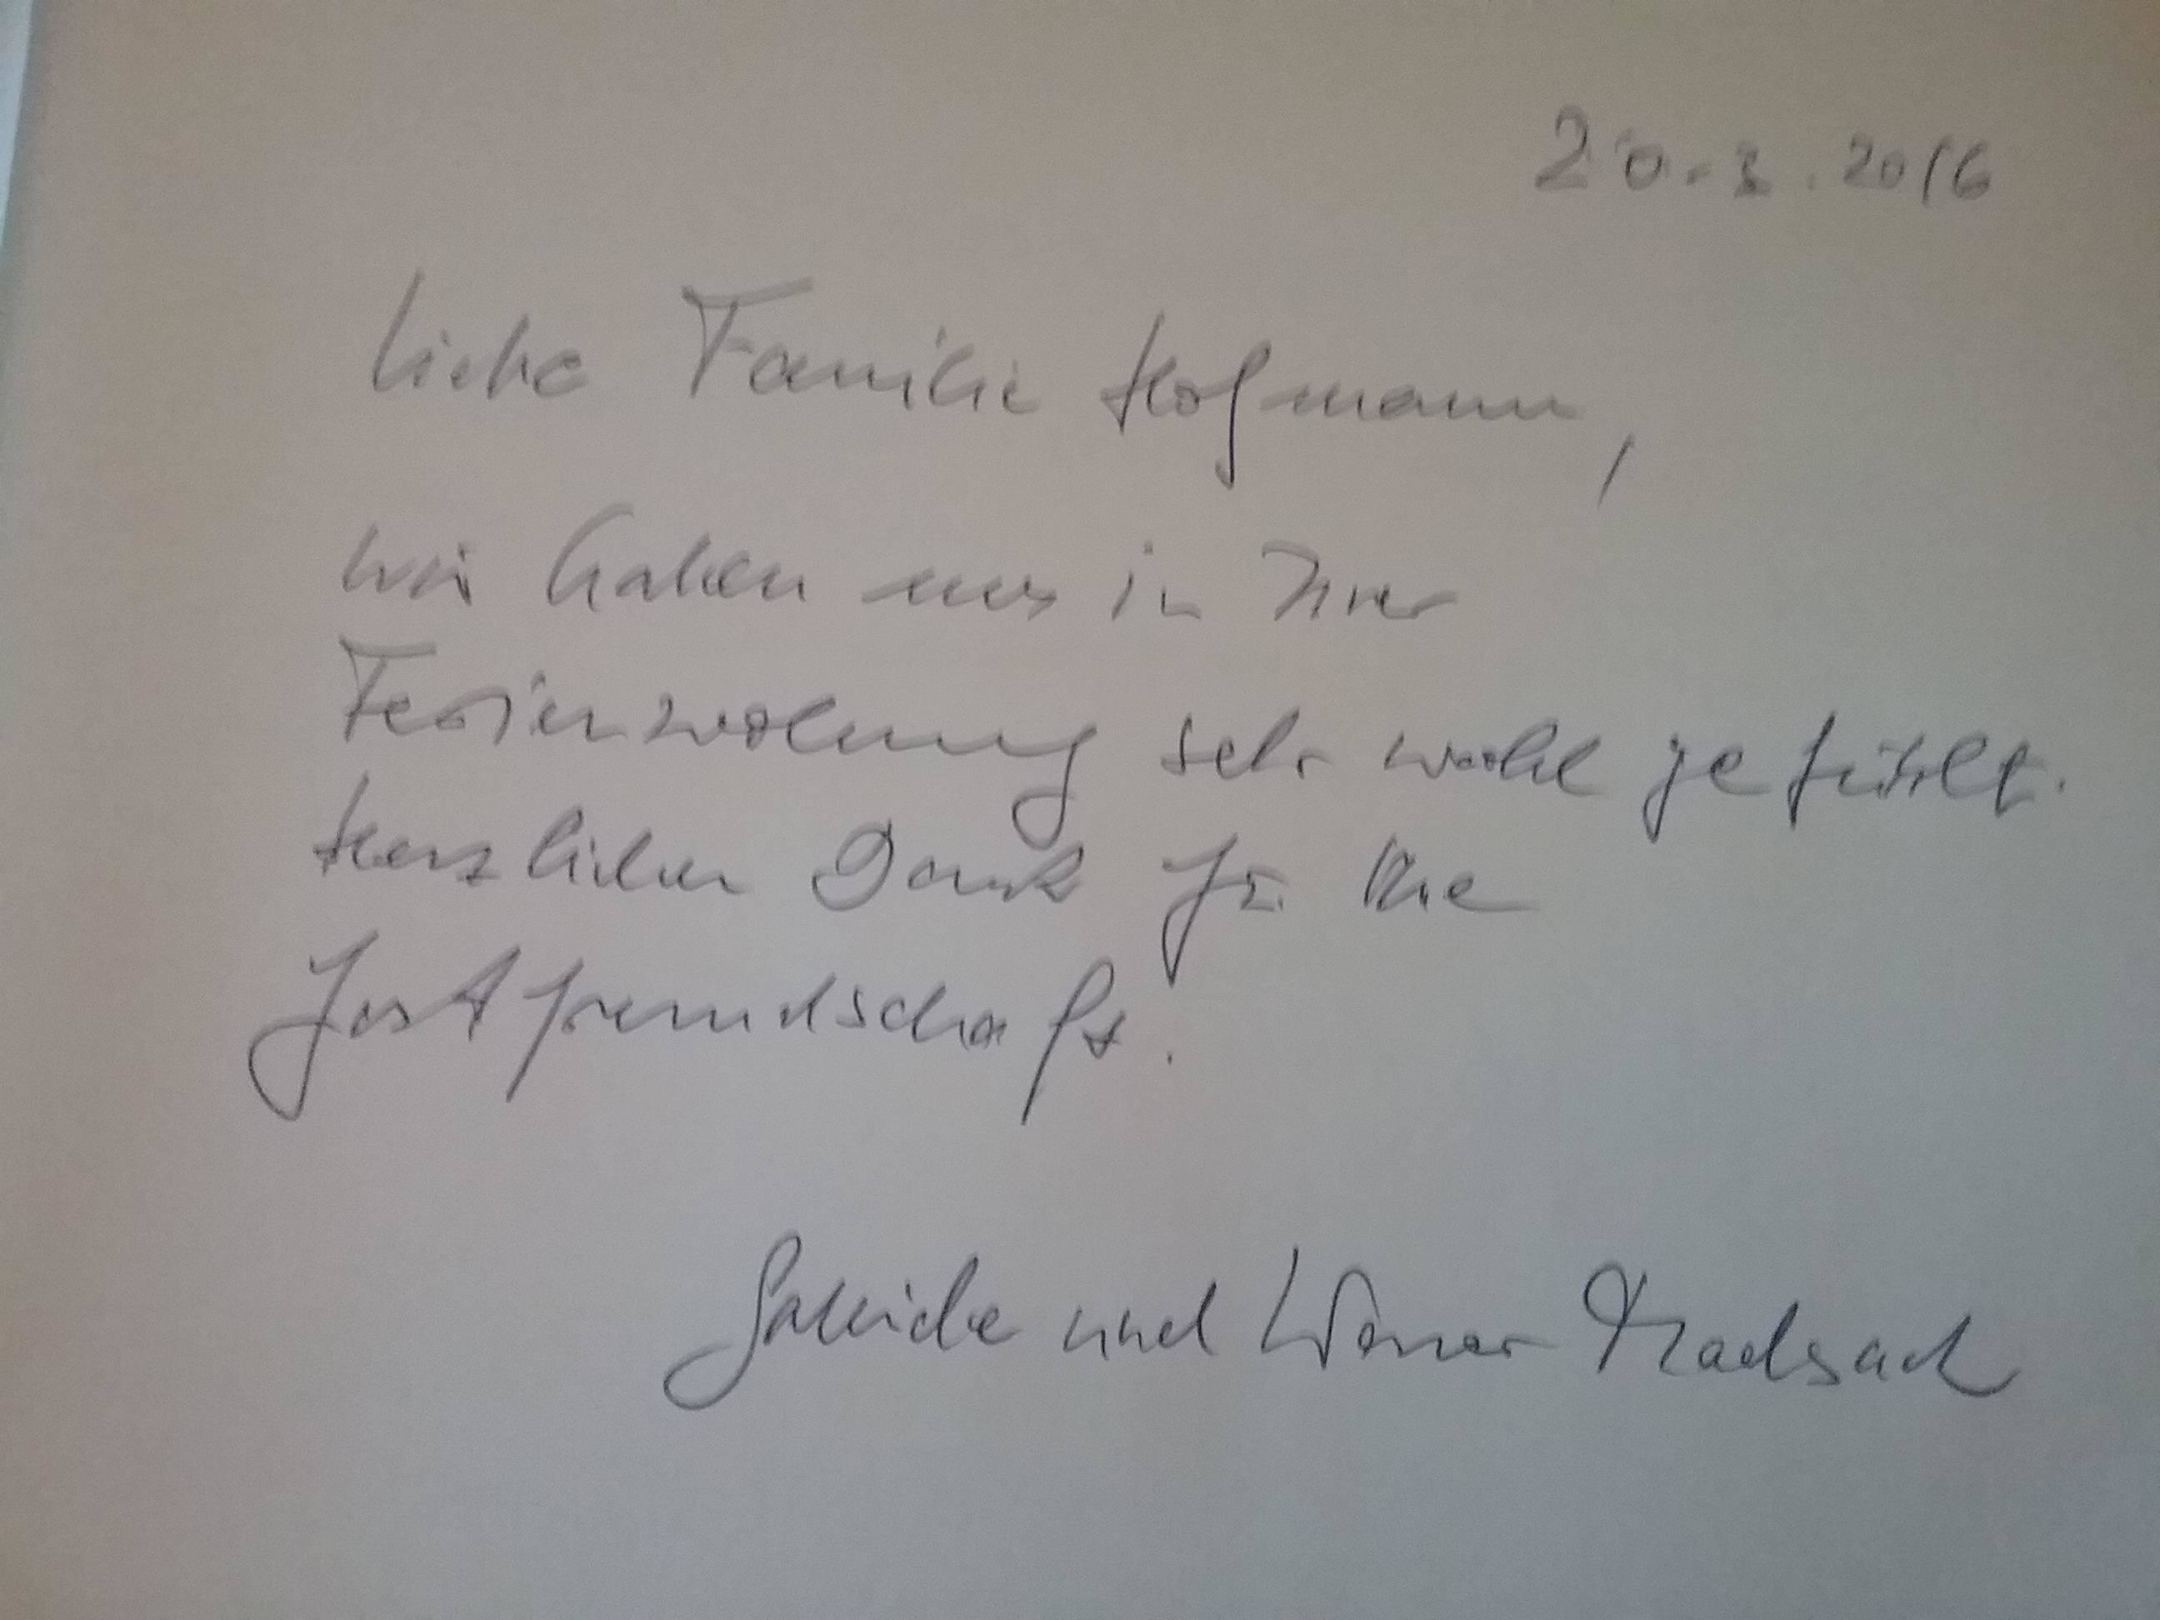 20.3.2016
Liebe Familie Hofmann,
wir haben uns in Ihrer
Ferienwohnung sehr wohl gefühlt.
Herzlichen Dank für Ihre
Gastfreundschaft.
Gabriele und Werner